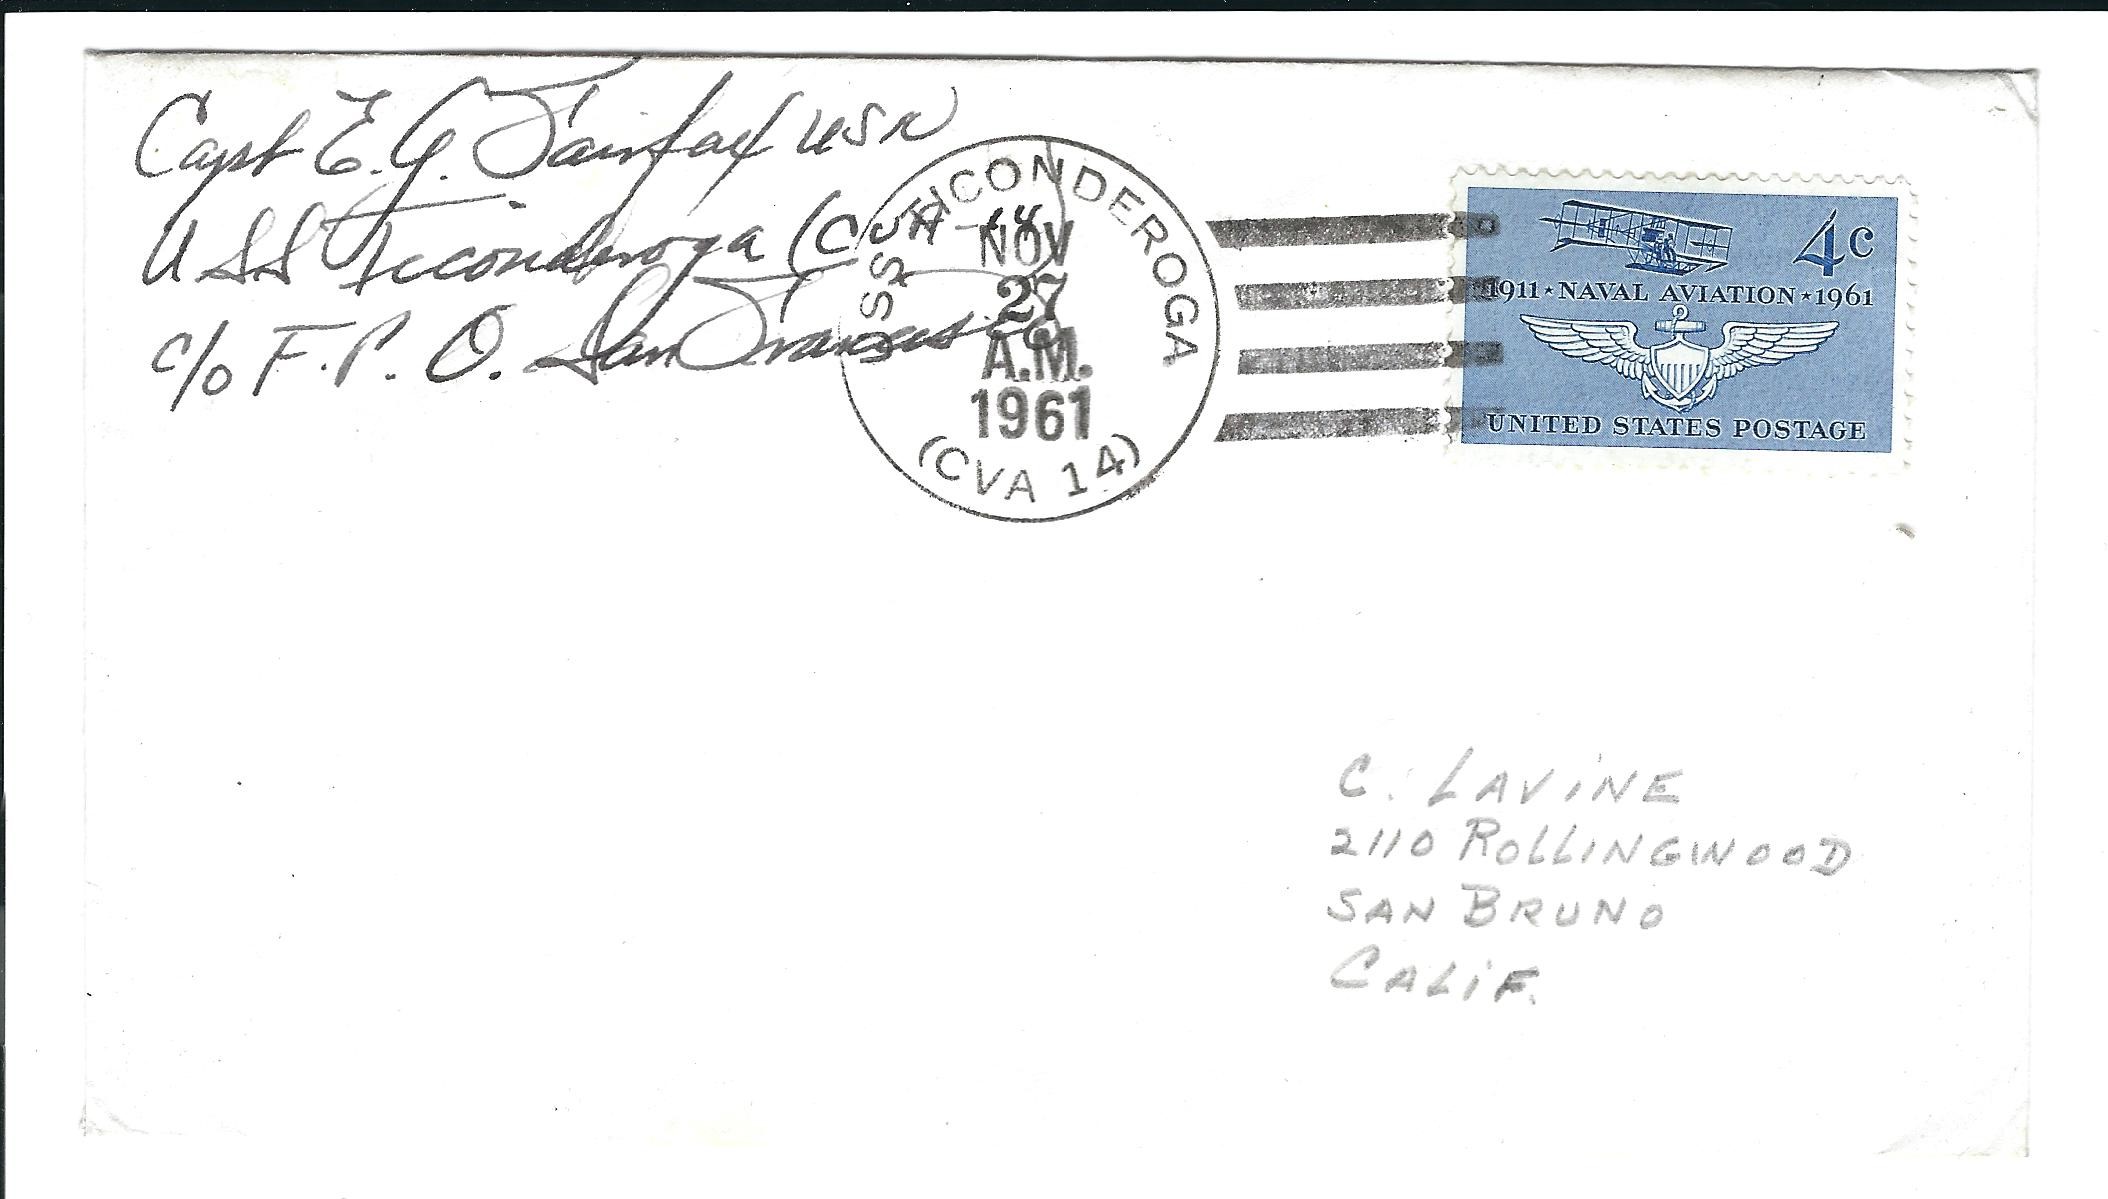 Capt E. G. Fairfax USN
USS Ticonderoga (CVA-14)
c/o F.P.O. San Francisco
USS TICONDEROGA
NOV
27
A.M.
1961
(CVA 14)
4c
1911 ★ NAVAL AVIATION ★ 1961
UNITED STATES POSTAGE
C. LAVINE
2110 ROLLINGWOOD
SAN BRUNO
CALIF.